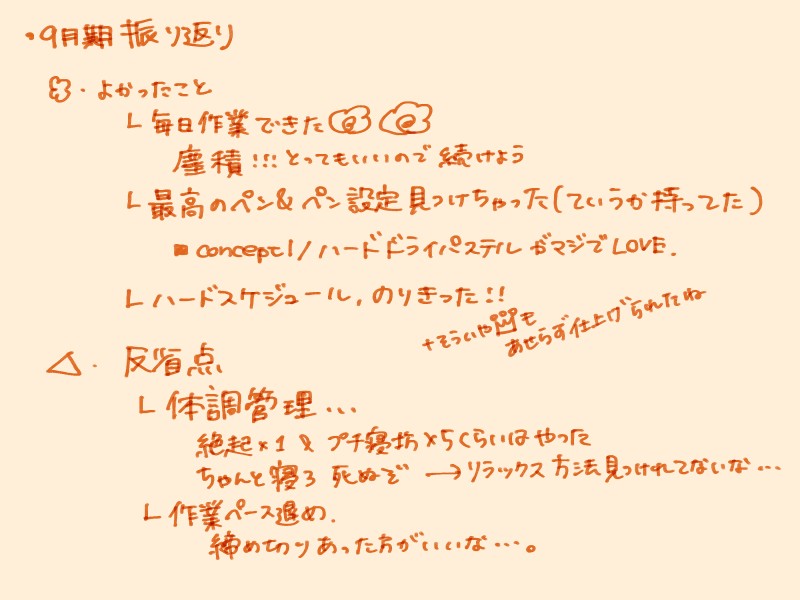 ・9月期振り返り
・よかったこと
└ 毎日作業できた
塵積!!! とってもいいので続けよう
└ 最高のペン&ペン設定見つけちゃった(ていうか持ってた)
■ concept1/ハードドライパステルがマジでLOVE.
└ ハードスケジュール,のりきった!!
+そういや も
あせらず仕上げられたね
△・反省点
└ 体調管理...
絶起×1 & プチ寝坊×5くらいはやった
ちゃんと寝ろ 死ぬぞ →リラックス方法見つけれてないな...
└ 作業ペース遅め.
締め切りあった方がいいな...。